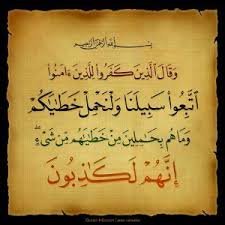 بسم الله الرحمن الرحيم
وَقَالَ ٱلَّذِينَ كَفَرُوا۟ لِلَّذِينَ ءَامَنُوا۟
ٱتَّبِعُوا۟ سَبِيلَنَا وَلْنَحْمِلْ خَطَٰيَٰكُمْ
وَمَا هُم بِحَٰمِلِينَ مِنْ خَطَٰيَٰهُم مِّن شَىْءٍ ۖ
إِنَّهُمْ لَكَٰذِبُونَ